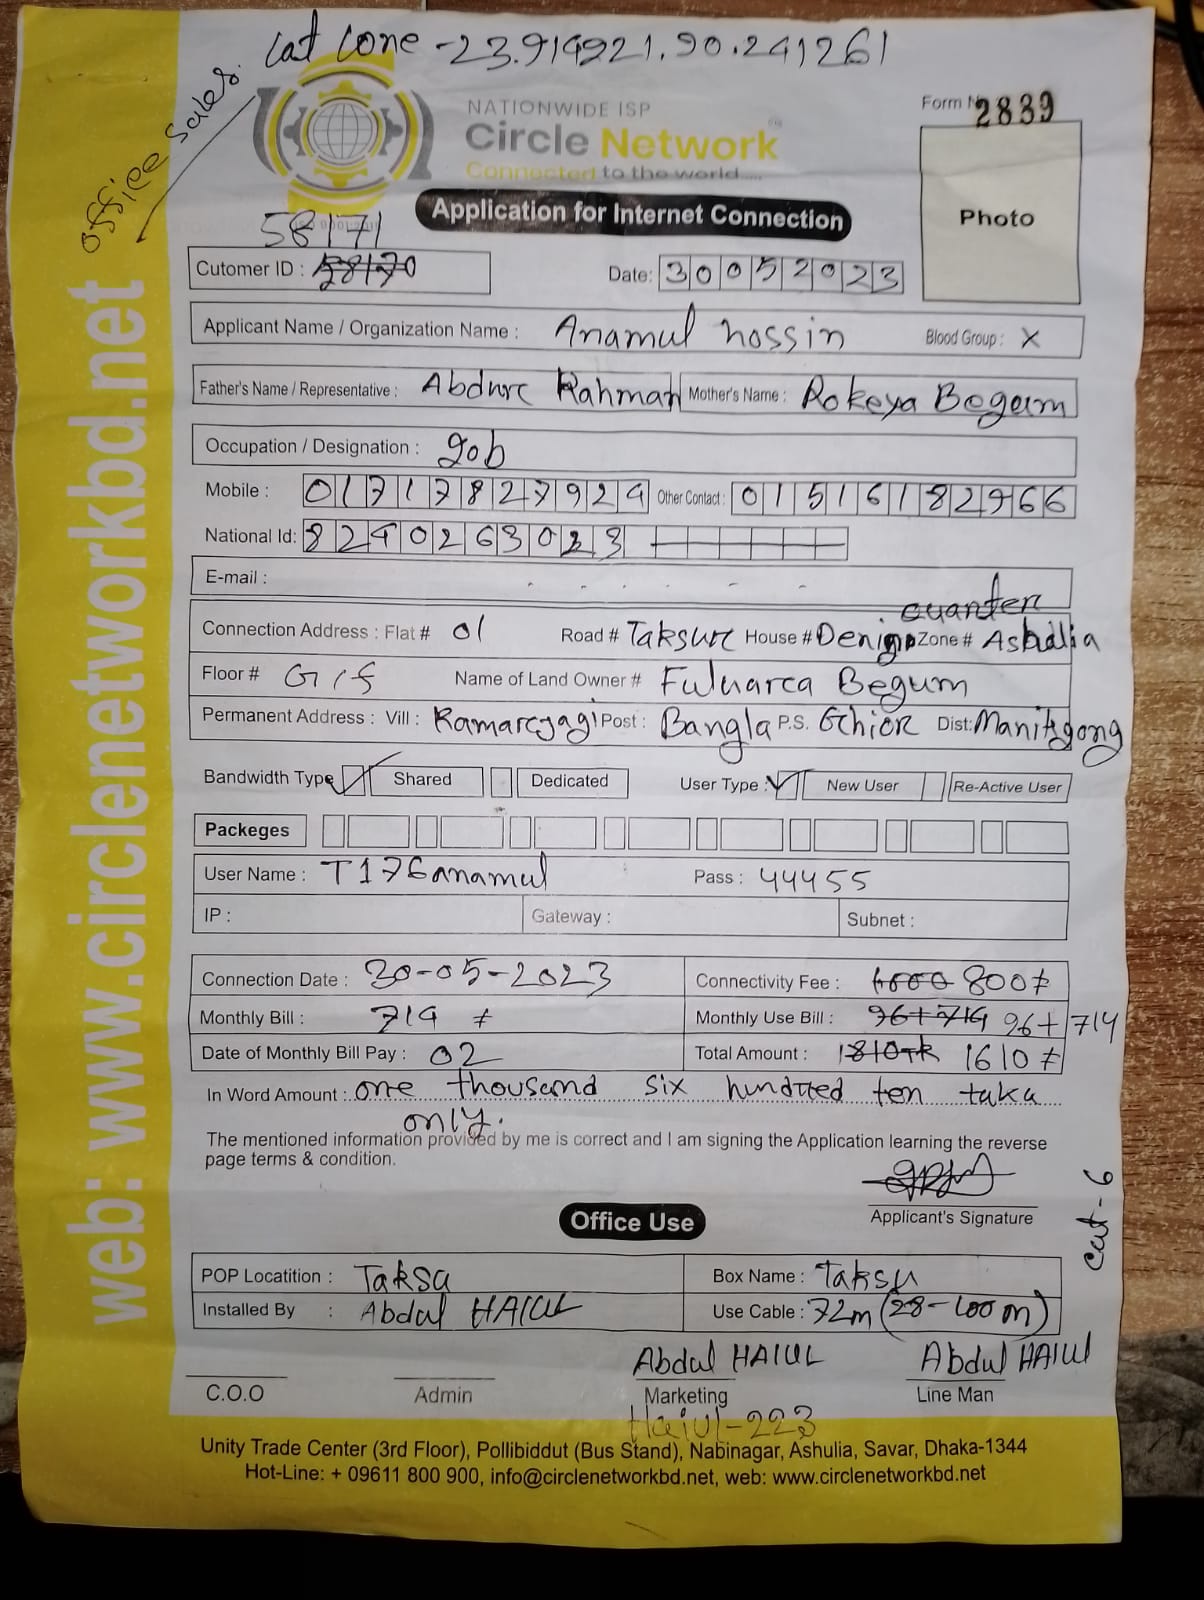 Lat Lone -23.914921.90.241261
office sales.
NATIONWIDE ISP
Form N 2839
Circle Network
Connected to the world.....
Application for Internet Connection
Photo
58171
Cutomer ID : 58170
Date: 30052023
Applicant Name / Organization Name : Anamul hossin Blood Group : X
Father's Name / Representative : Abdur Rahman Mother's Name : Rokeya Begum
Occupation / Designation : Job
Mobile : 01717827924 Other Contact : 01516182966
National Id: 8240263023
E-mail :
Connection Address : Flat # 01 Road # Taksur House # Zone # Ashulia
Floor # G Name of Land Owner # Begum
Permanent Address : Vill : Post : Bangla P.S. Ghior Dist: Manikgong
Bandwidth Type Shared Dedicated User Type : New User Re-Active User
Packeges
User Name : T176anamul Pass : 44455
IP : Gateway : Subnet :
Connection Date : 30-05-2023 Connectivity Fee : 1000 800৳
Monthly Bill : 714 ৳ Monthly Use Bill : 96+714 96+714
Date of Monthly Bill Pay : 02 Total Amount : 1810TK 1610 ৳
In Word Amount : one thousand six hundred ten taka
only.
The mentioned information provided by me is correct and I am signing the Application learning the reverse
page terms & condition.
Applicant's Signature
cat-6
Office Use
POP Locatition : Taksu Box Name : Taksu
Installed By : Abdul HAIUL Use Cable : 72m (28-100m)
Abdul HAIUL Abdul HAIUL
C.O.O Admin Marketing Line Man
Haiul-223
Unity Trade Center (3rd Floor), Pollibiddut (Bus Stand), Nabinagar, Ashulia, Savar, Dhaka-1344
Hot-Line: + 09611 800 900, info@circlenetworkbd.net, web: www.circlenetworkbd.net
web: www.circlenetworkbd.net